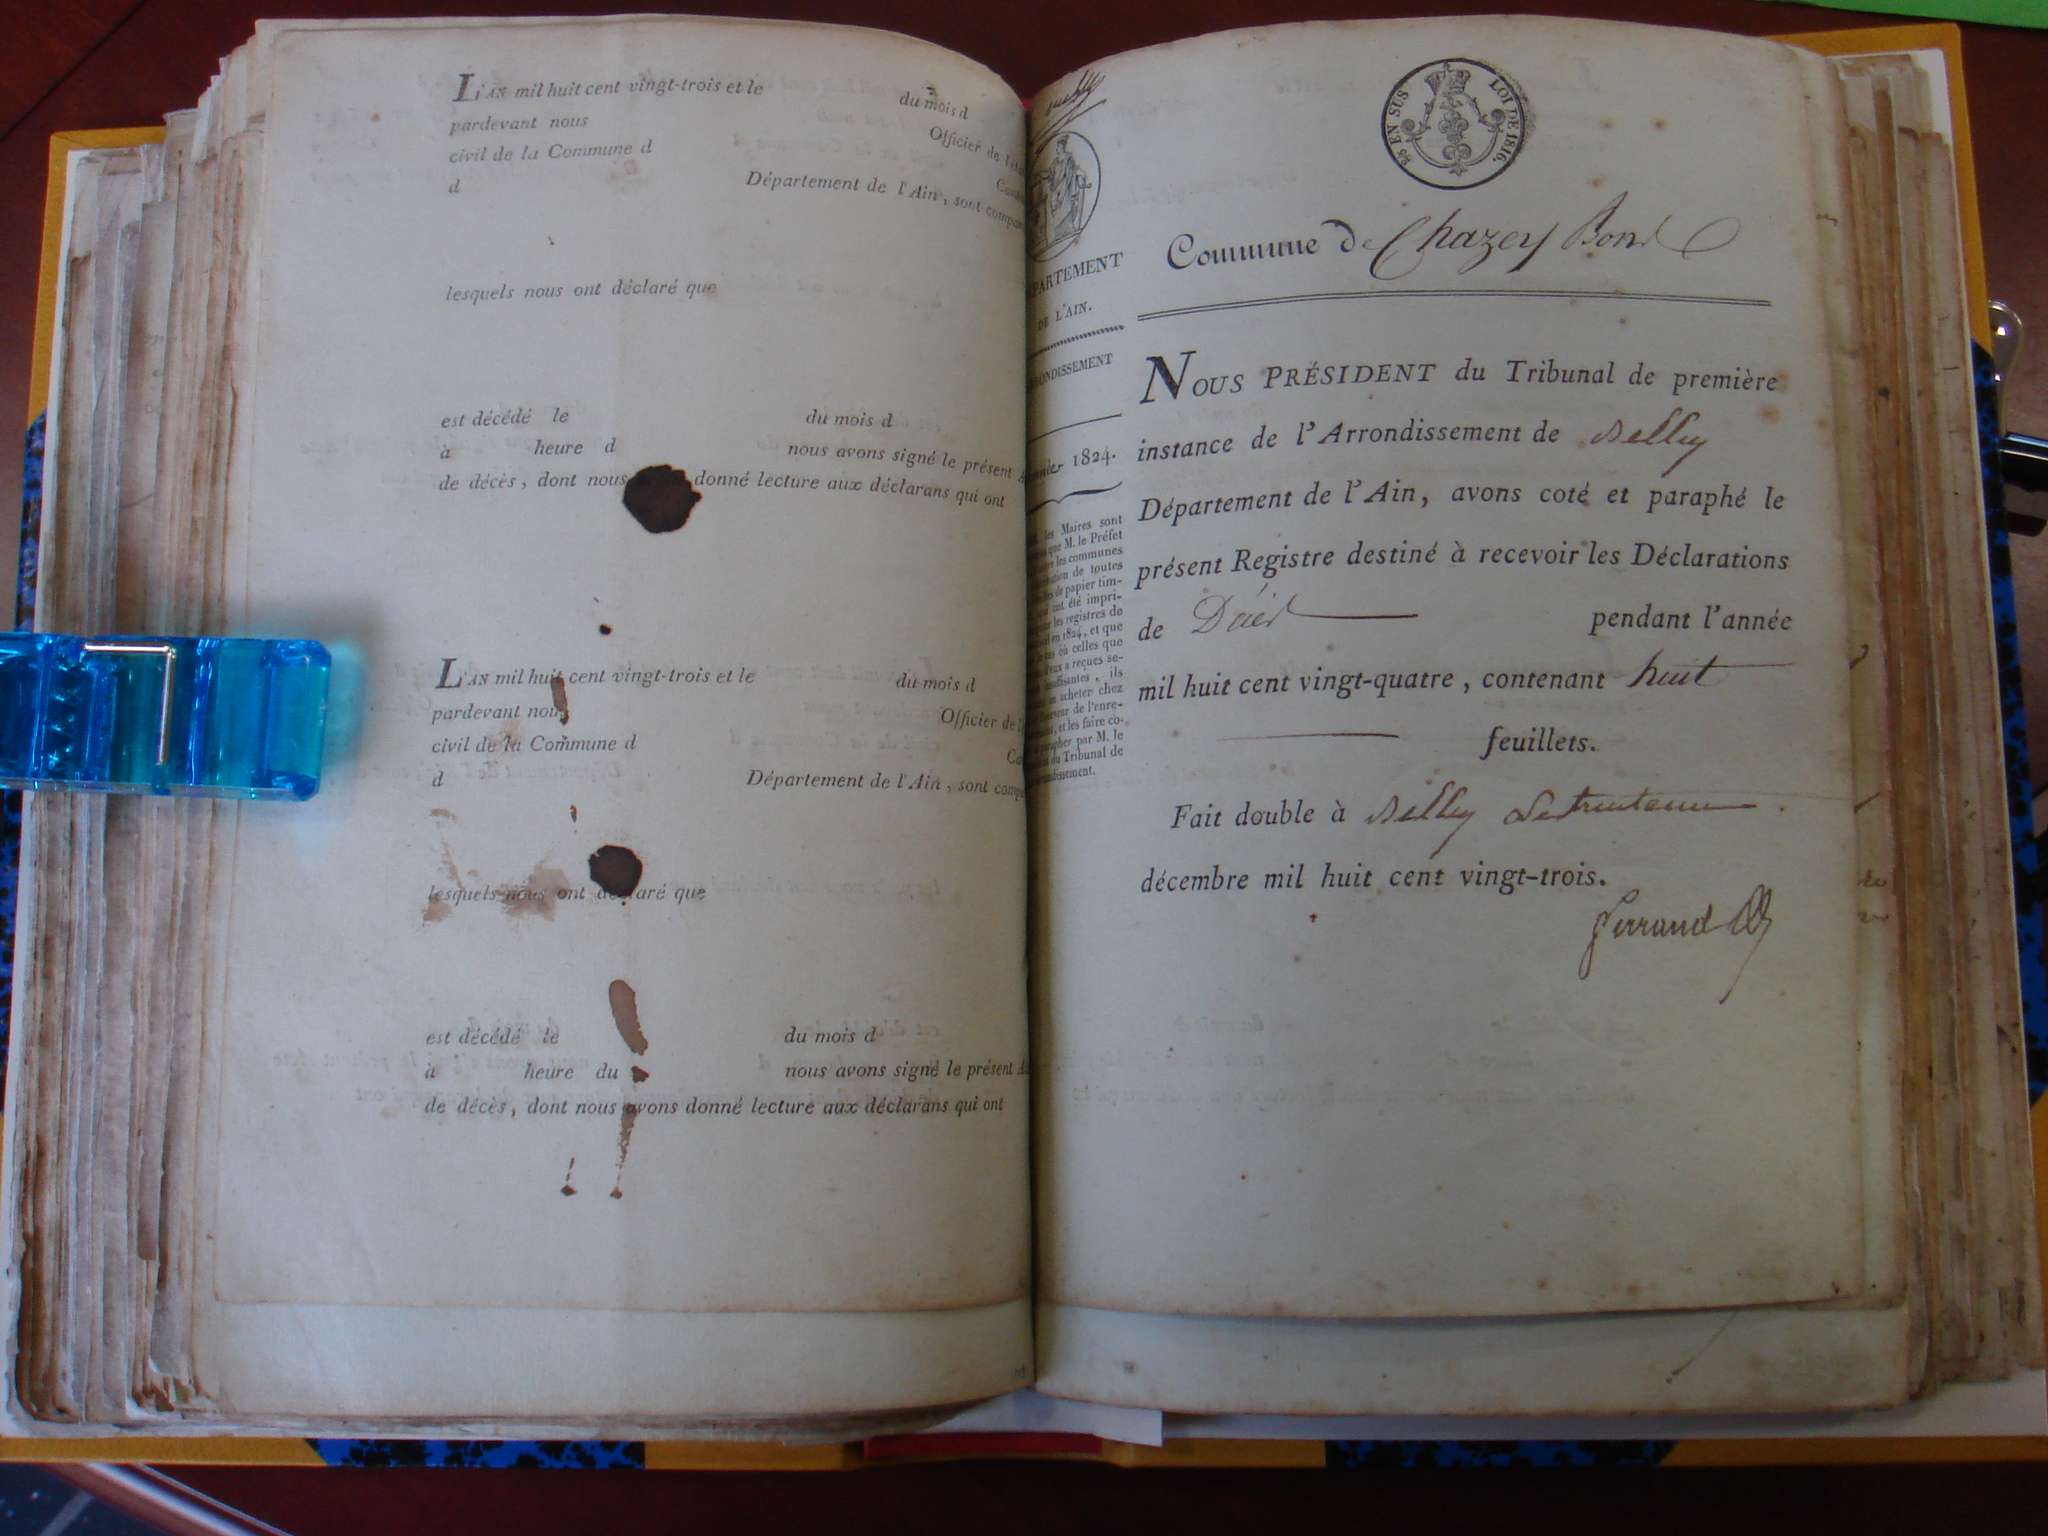 L'AN mil huit cent vingt-trois et le du mois d
pardevant nous Officier de l'éta
civil de la Commune d
d Département de l'Ain, sont compar
lesquels nous ont déclaré que
est décédé le du mois d
à heure d nous avons signé le présent A
de décès, dont nous donné lecture aux déclarans qui ont
L'AN mil huit cent vingt-trois et le du mois d
pardevant nous Officier de l'
civil de la Commune d
d Département de l'Ain, sont comp
lesquels nous ont déclaré que
est décédé le du mois d
à heure du nous avons signé le présent A
de décès, dont nous avons donné lecture aux déclarans qui ont
25 EN SUS LOI DE 1816.
PARTEMENT
DE L'AIN.
ONDISSEMENT
1824.
les Maires sont
que M. le Préfet
les communes
de toutes
de papier tim-
ont été impri-
les registres de
en 1824, et que
où celles que
a reçues se-
ils
acheter chez
de l'enre-
et les faire co-
par M. le
du Tribunal de
Commune de Chazey Bons
NOUS PRÉSIDENT du Tribunal de première
instance de l'Arrondissement de Belley
Département de l'Ain, avons coté et paraphé le
présent Registre destiné à recevoir les Déclarations
de Décès pendant l'année
mil huit cent vingt-quatre, contenant huit
feuillets.
Fait double à Belley
décembre mil huit cent vingt-trois.
Ferrand